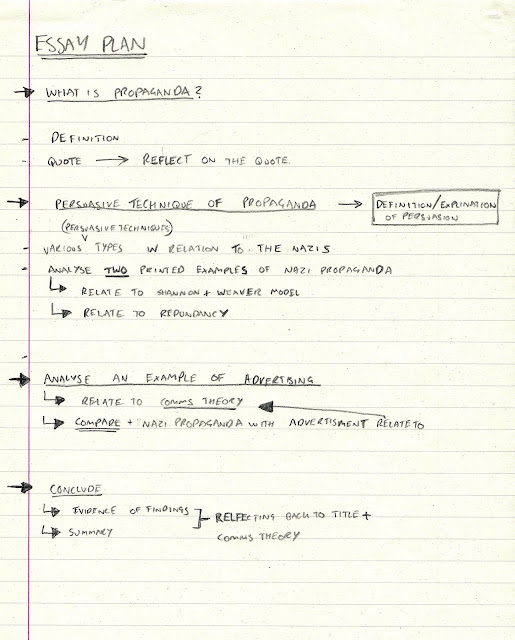 ESSAY PLAN
→ WHAT IS PROPAGANDA?
- DEFINITION
- QUOTE → REFLECT ON THE QUOTE.
→ PERSUASIVE TECHNIQUE OF PROPAGANDA → DEFINITION/EXPLINATION OF PERSUASION
(PERSUASIVE TECHNIQUES)
- VARIOUS TYPES W RELATION TO THE NAZIS
- ANALYSE TWO PRINTED EXAMPLES OF NAZI PROPAGANDA
↳ RELATE TO SHANNON + WEAVER MODEL
↳ RELATE TO REDUNDANCY
-
→ ANALYSE AN EXAMPLE OF ADVERTISING
↳ RELATE TO COMMS THEORY
↳ COMPARE + NAZI PROPAGANDA WITH ADVERTISMENT RELATE TO
→ CONCLUDE
↳ EVIDENCE OF FINDINGS
↳ SUMMARY
RELFECTING BACK TO TITLE +
COMMS THEORY